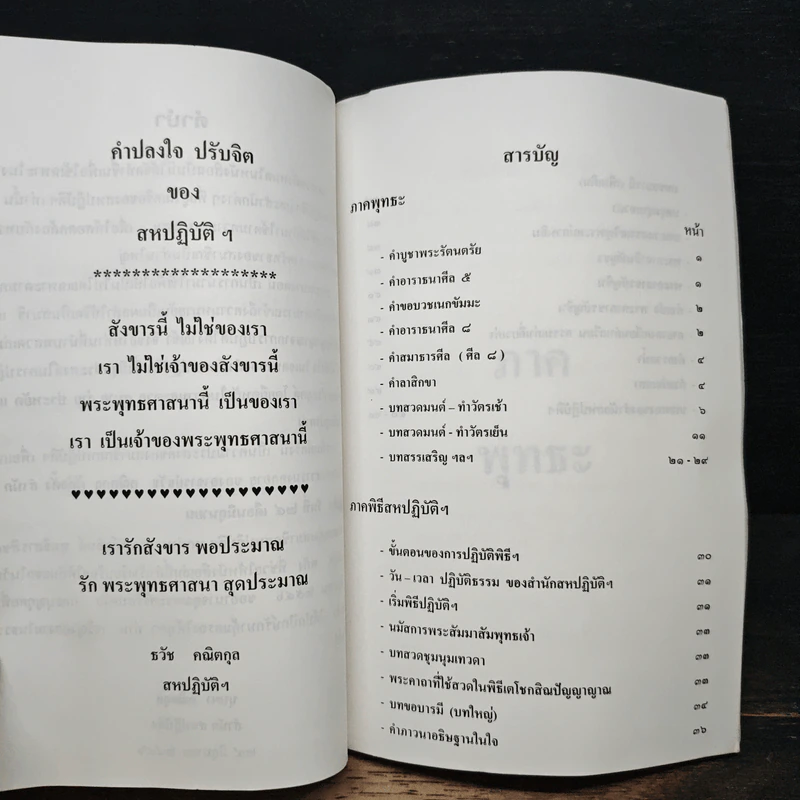 คำปลงใจ ปรับจิต
ของ
สหปฏิบัติ ฯ
*******************
สังขารนี้ ไม่ใช่ของเรา
เรา ไม่ใช่เจ้าของสังขารนี้
พระพุทธศาสนานี้ เป็นของเรา
เรา เป็นเจ้าของพระพุทธศาสนานี้
♥♥♥♥♥♥♥♥♥♥♥♥♥♥♥♥♥♥♥
เรารักสังขาร พอประมาณ
รัก พระพุทธศาสนา สุดประมาณ
ธวัช คณิตกุล
สหปฏิบัติฯ
สารบัญ
ภาคพุทธะ
หน้า
- คำบูชาพระรัตนตรัย ๑
- คำอาราธนาศีล ๕ ๑
- คำขอบวชเนกขัมมะ ๒
- คำอาราธนาศีล ๘ ๒
- คำสมาธารศีล (ศีล ๘) ๔
- คำลาสิกขา ๔
- บทสวดมนต์ - ทำวัตรเช้า ๖
- บทสวดมนต์ - ทำวัตรเย็น ๑๑
- บทสรรเสริญ ฯลฯ ๒๑ - ๒๙
ภาคพิธีสหปฏิบัติฯ
- ขั้นตอนของการปฏิบัติพิธีฯ ๓๐
- วัน - เวลา ปฏิบัติธรรม ของสำนักสหปฏิบัติฯ ๓๑
- เริ่มพิธีปฏิบัติฯ ๓๑
- นมัสการพระสัมมาสัมพุทธเจ้า ๓๓
- บทสวดชุมนุมเทวดา ๓๓
- พระคาถาที่ใช้สวดในพิธีเตโชกสิณปัญญาญาณ ๓๓
- บทขอบารมี (บทใหญ่) ๓๔
- คำภาวนาอธิษฐานในใจ ๓๖